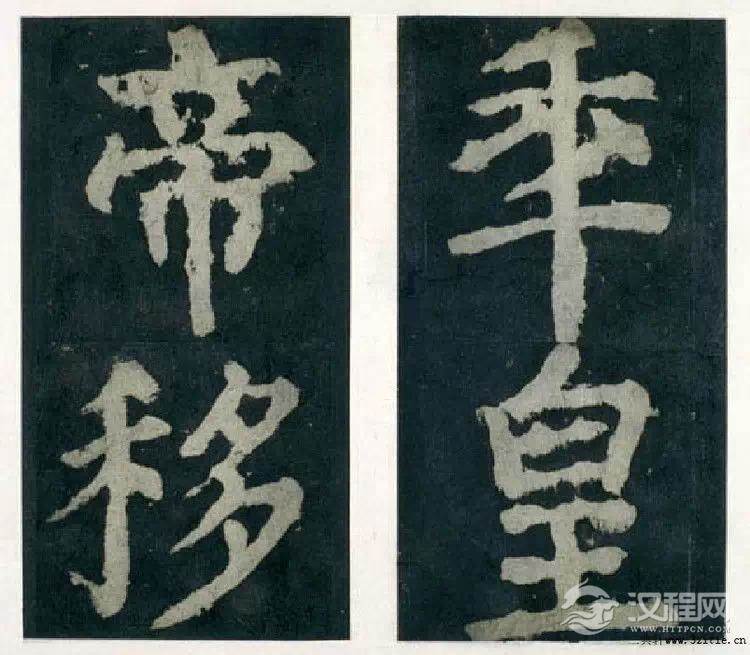 年皇
帝移
汉程网
WWW.HTTPCN.COM